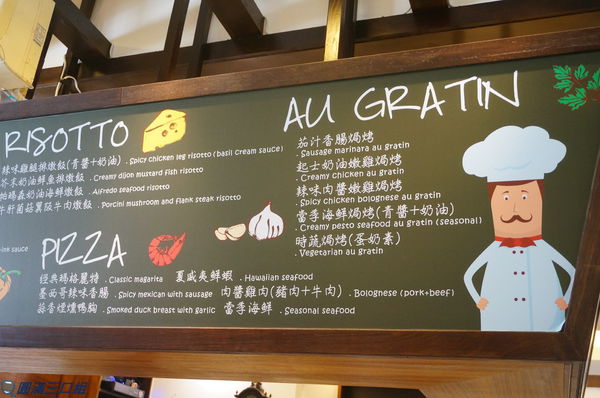 RISOTTO
辣味雞腿排燉飯(青醬+奶油) . Spicy chicken leg risotto (basil cream sauce)
芥末奶油鮮魚排燉飯 . Creamy dijon mustard fish risotto
帕瑪森奶油海鮮燉飯 . Alfredo seafood risotto
牛肝菌菇翼板牛肉燉飯 . Porcini mushroom and flank steak risotto
-ink sauce
PIZZA
經典瑪格麗特 . Classic magarita
夏威夷鮮蝦 . Hawaiian seafood
墨西哥辣味香腸 . Spicy mexican with sausage
肉醬雞肉(豬肉+牛肉) . Bolognese (pork+beef)
蒜香煙燻鴨胸 . Smoked duck breast with garlic
當季海鮮 . Seasonal seafood
AU GRATIN
茄汁香腸焗烤
. Sausage marinara au gratin
起士奶油嫩雞焗烤
. Creamy chicken au gratin
辣味肉醬嫩雞焗烤
. Spicy chicken bolognese au gratin
當季海鮮焗烤(青醬+奶油)
. Creamy pesto seafood au gratin (seasonal)
時蔬焗烤(蛋奶素)
. Vegetarian au gratin
圓滿三口組